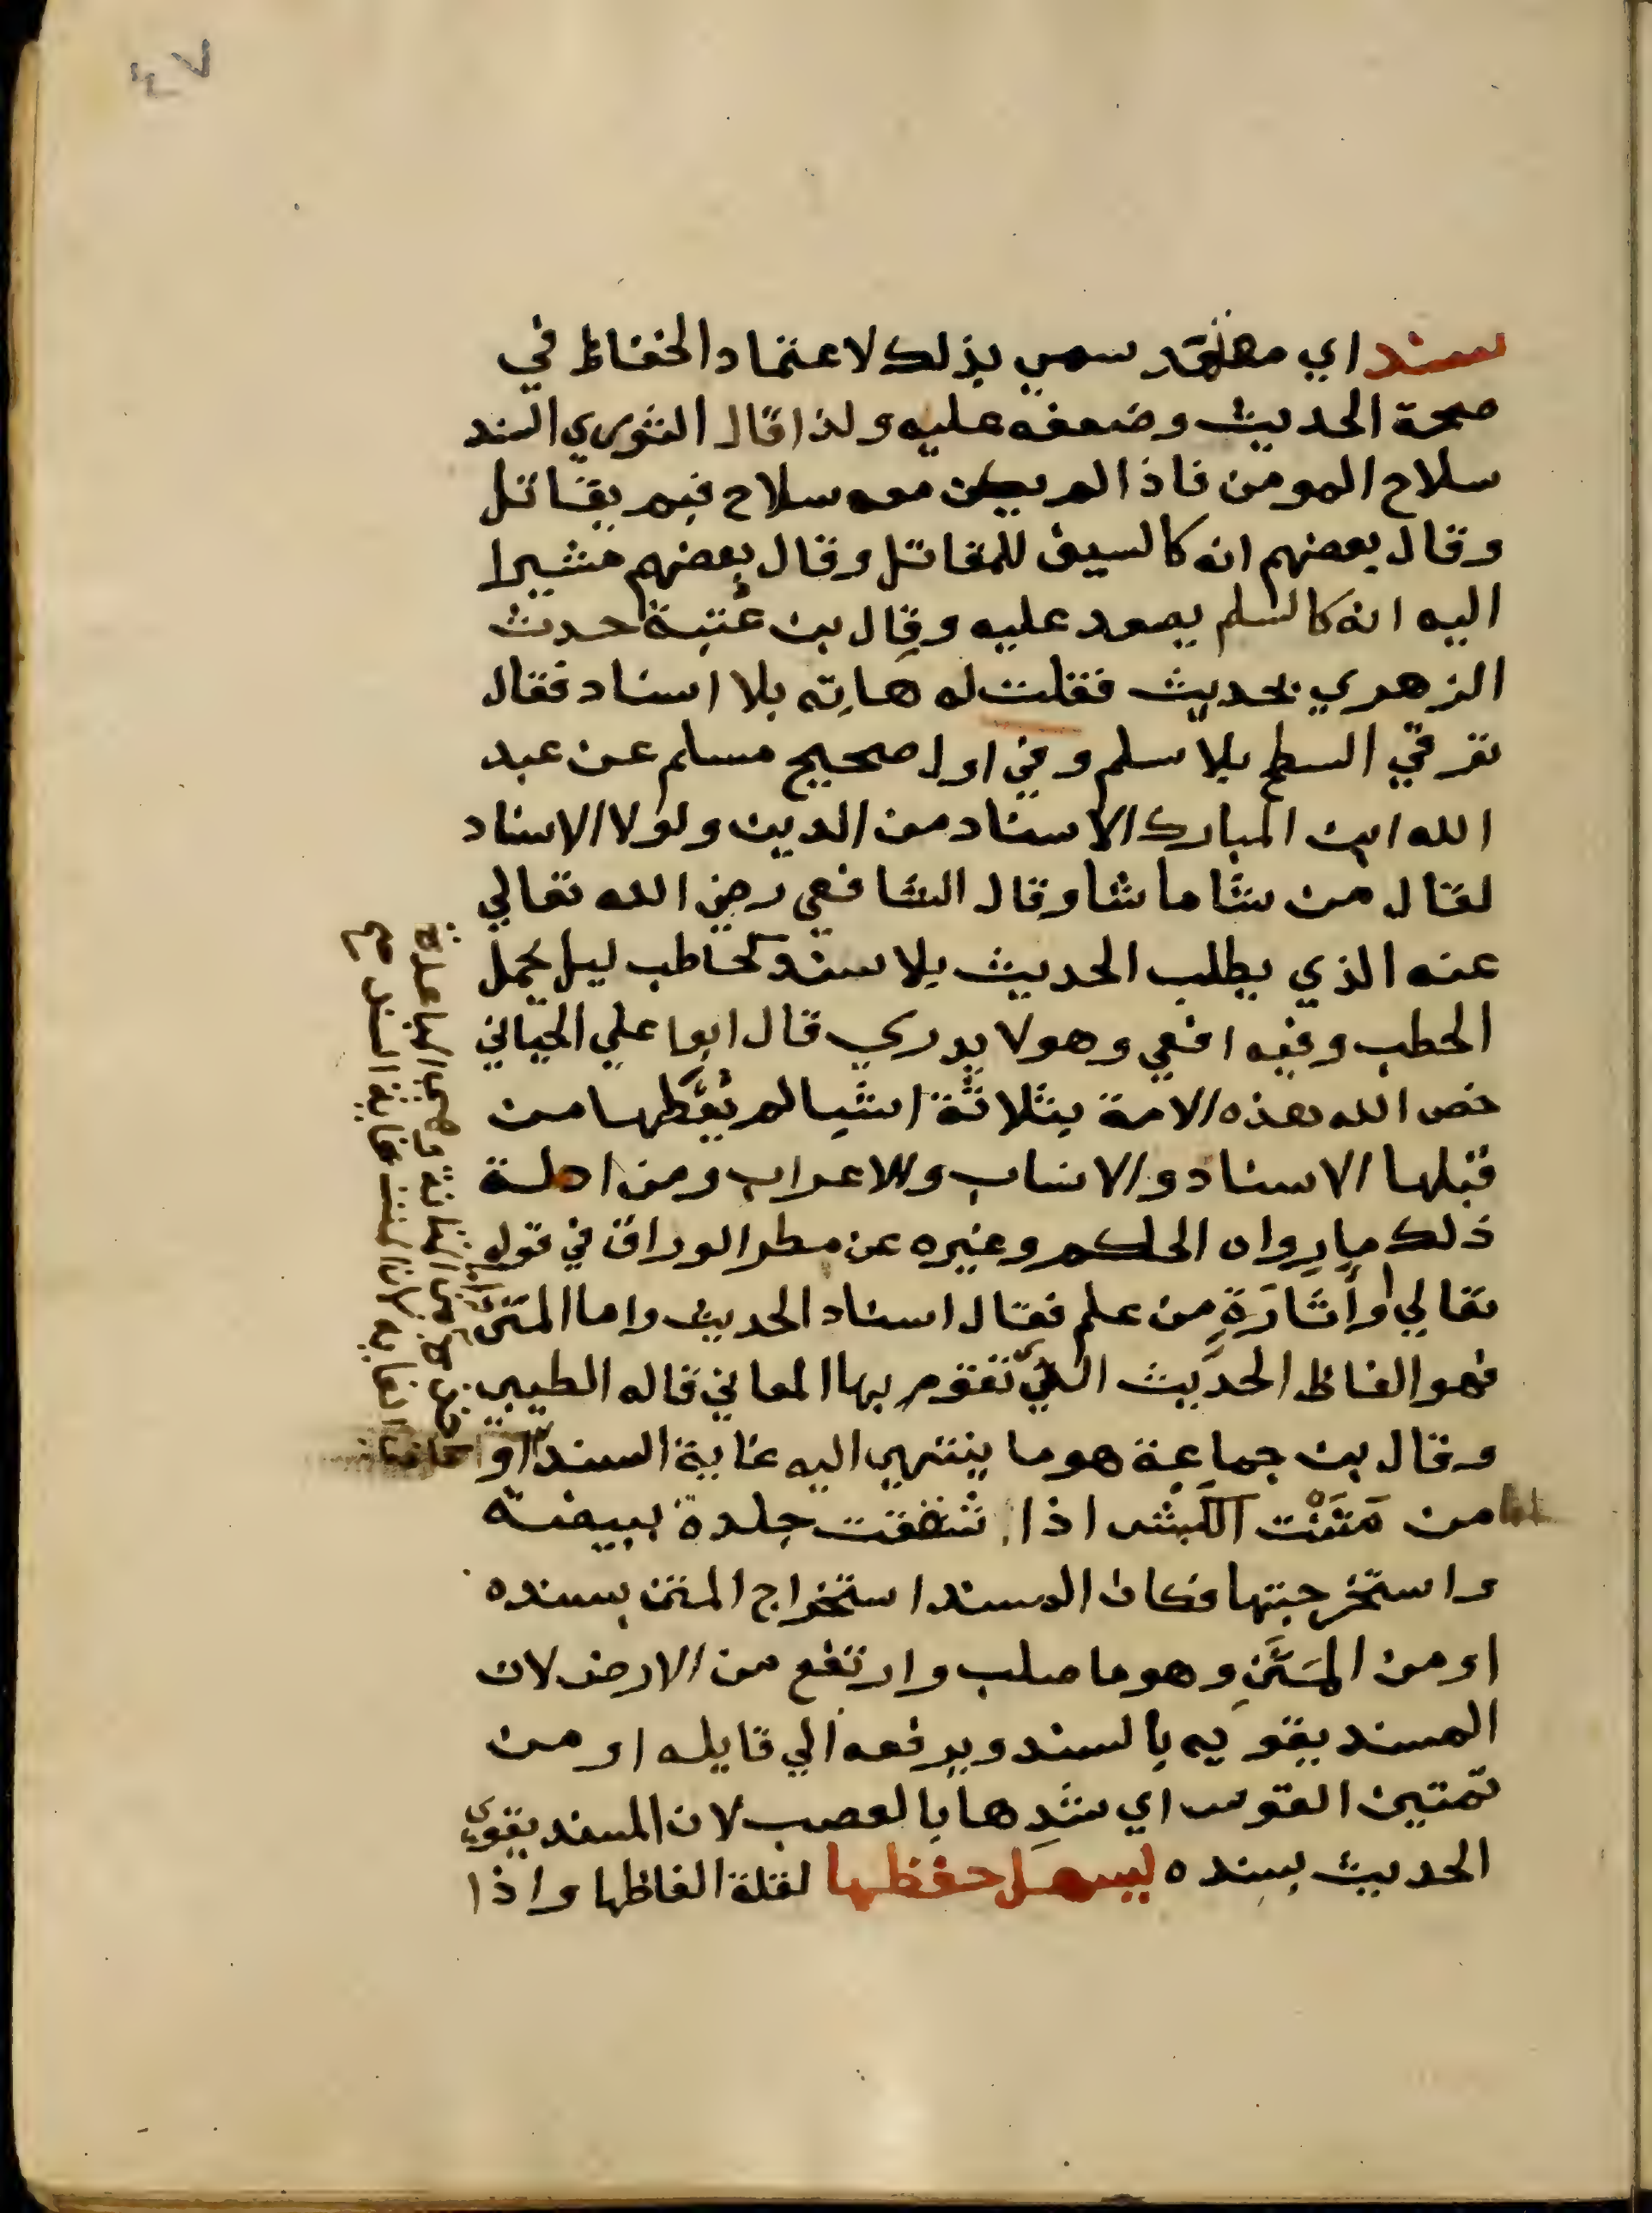 سند اي معتمد سمي بذلك لاعتماد الحفاظ في
صحة الحديث وضعفه عليه ولذا قال الثوري السند
سلاح المومن فاذا لم يكن معه سلاح فبم يقاتل
وقال بعضهم انه كالسيف للمقاتل وقال بعضهم مشيرا
اليه انه كالسلم يصعد عليه وقال بن عتبة حدث
الزهري بحديث فقلت له هاته بلا اسناد فقال
ترقي السطح بلا سلم وفي اول صحيح مسلم عن عبد
الله ابن المبارك الاسناد من الدين ولولا الاسناد
لقال من شا ما شا وقال الشافعي رضي الله تعالي
عنه الذي يطلب الحديث بلا سند كحاطب ليل يحمل
الحطب وفيه افعي وهو لا يدري قال ابوا علي الجياني
خص الله هذه الامة بثلاثة اشيا لم يُعطها من
قبلها الاسناد والانساب والاعراب ومن ادلة
ذلك ما رواه الحاكم وغيره عن مطر الوراق في قوله
تعالي أو أَثَارَةٍ من علم فقال اسناد الحديث واما المتن
فهو الفاظ الحديث التي تتقوم بها المعاني قاله الطيبي
وقال بن جماعة هو ما ينتهي اليه غاية السند او
من مَتَنْت الكبش اذا شققت جلدة بيضته
واستخرجتها فكان المسند استخراج المتن بسنده
او من المَتَنِ وهو ما صلب وارتفع من الارض لان
المسند يقويه بالسند ويرفعه الي قايله او من
تمتين القوس اي شدها بالعصب لان المسند يقوي
الحديث بسنده ليسهل حفظها لقلة الفاظها واذا